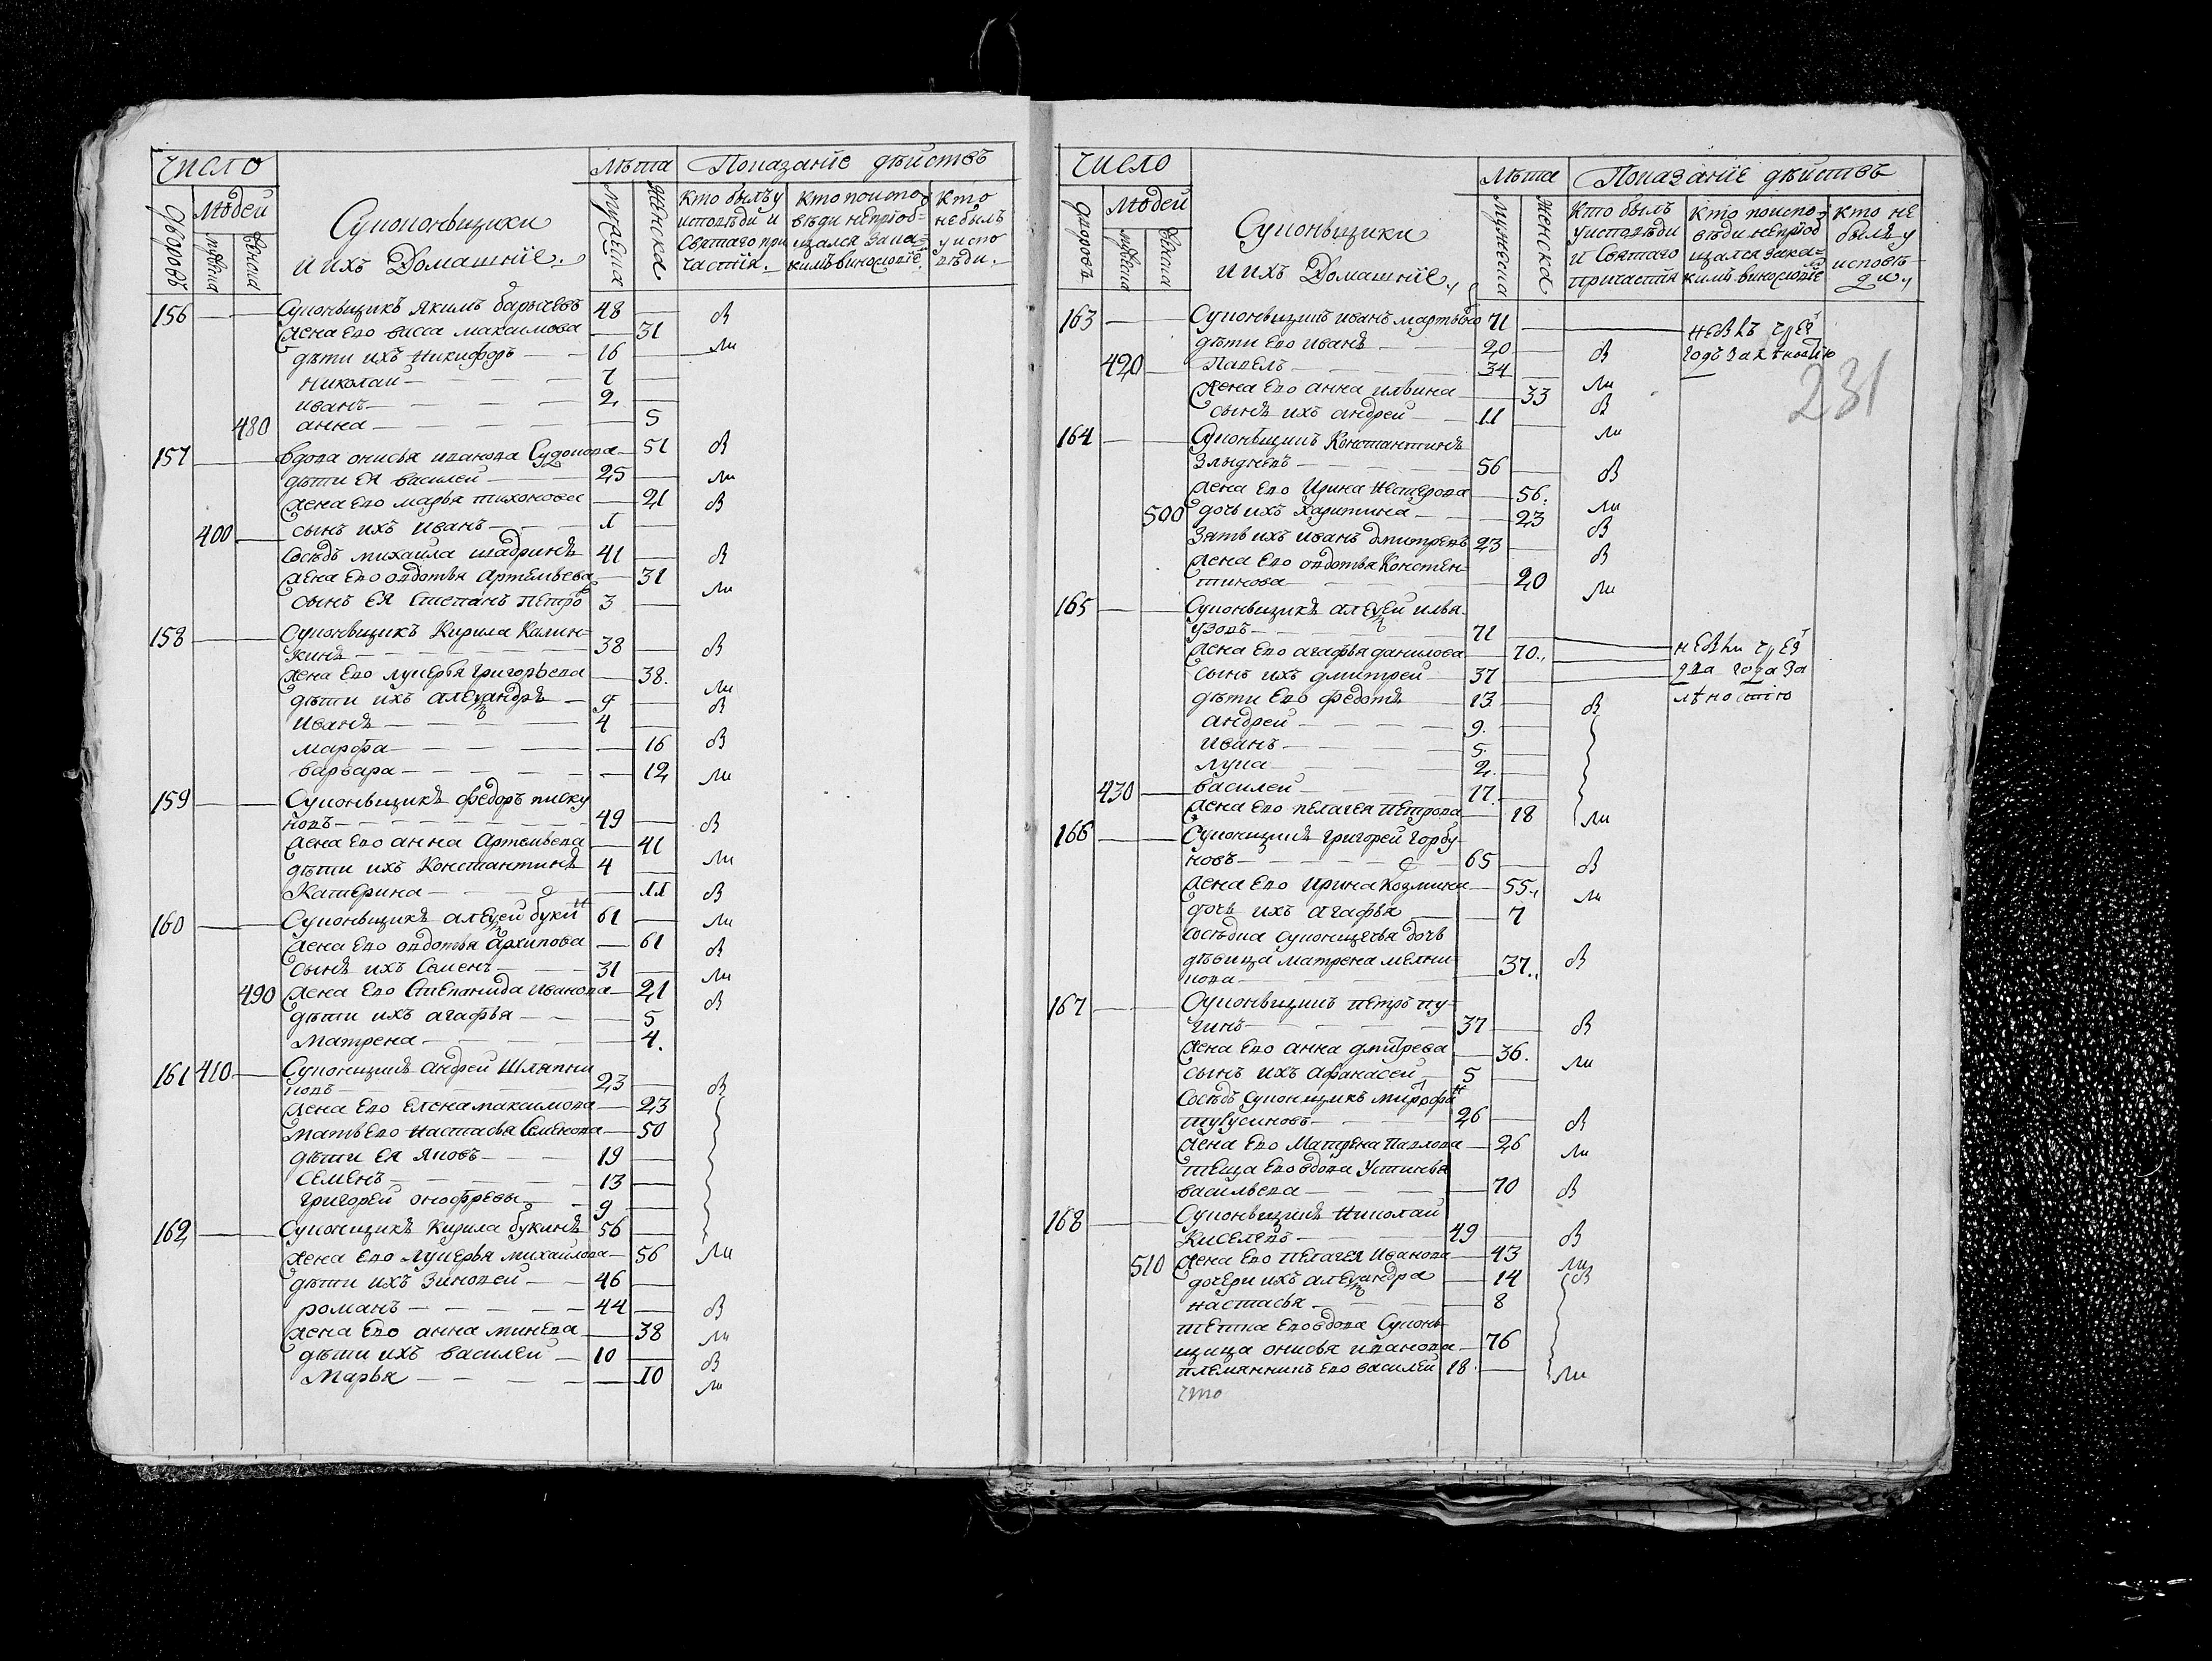 число
Лѣта Показанїе дѣйствъ
дворовъ
Людей
мужеска
женска
Суконьщики
и ихъ Домашнїе.
мужеска
женска
Кто былъ у
исповѣди и
святаго при
частїя.
Кто по испо
вѣди не прїоб=
щался за ка=
кимъ винословїе
Кто
не былъ
у испо
вѣди.
156 Суконьщикъ Якимъ барычевъ 48 в
Жена Ево васса максимова 31
дѣти ихъ Никифоръ 16 ли
Николай 7
иванъ 2
480 анна 5
157 вдова онисья иванова 51 в
дѣти Ея василей 25 ли
Жена Ево марья тихонова 21 в
400 сынъ ихъ иванъ 1
Сосѣдъ михаила шадринъ 41 в
Жена Ево овдотья Артемьева 31 ли
сынъ Ея Степанъ Петро 3
158 Суконьщикъ Кирила Калин=
кинъ 38 в
Жена Ево лукерья григорьева 38. ли
дѣти ихъ алеѯандръ 9 в
иванъ 4
марфа 16 в
варвара 12 ли
159 Суконьщикъ федоръ писку
новъ 49 в
Жена Ево анна Артемьева 41 ли
дѣти ихъ Константинъ 4
Катерина 11 в
160 Суконьщикъ алеѯей букин 61 ли
Жена Ево овдотья архипова 61 в
сынъ ихъ Семенъ 31 ли
490 Жена Ево Степанида иванова 21 в
дѣти ихъ агафья 5
матрена 4.
161 410 Суконщикъ андрей Шляпни
ковъ 23 в
Жена Ево Елена максимова 23
мать Ево Настасья Семенова 50
дѣти Ея Яковъ 19
Семенъ 13
григорей онофревы 9
162 Суконщикъ Кирила букинъ 56
Жена Ево лукерья михайлова 56 ли
дѣти ихъ Зиновей 46
романъ 44 в
Жена Ево анна минева 38 ли
дѣти ихъ василей 10 в
Марья 10 ли
число
Лѣта Показанїе дѣйствъ
дворовъ
Людей
мужеска
женска
Суконьщики
и ихъ Домашнїе.
мужеска
женска
Кто былъ
у исповѣди
и Святаго
причастїя
Кто по испо
вѣди не прїоб
щался за ка=
кимъ винословїе
кто не
былъ у
исповѣ
ди.
163 Суконьщикъ иванъ мартыно 71
дѣти Ево иванъ 20 в
420 Павелъ 34 ли
Жена Ево анна ильина 33 в
сынъ ихъ андрей 11 ли
годъ за лѣностїю
231
164 Суконьщикъ Константинъ
Злыдневъ 56 в
Жена Ево Ирина Нестерова 56. ли
500 дочь ихъ Харитина 23 в
Зять ихъ иванъ дмитревъ 23 в
Жена Ево овдотья Констен=
тинова 20 ли
165 Суконьщикъ алеѯей илья
узовъ 71
Жена Ево агафья данилова 70.
сынъ ихъ дмитрей 37
два года за
лѣностїю
дѣти Ево федотъ 13 в
андрей 9.
иванъ 5.
лука 2.
430 василей 17.
Жена Ево пелагея Петрова 18 ли
166 Суконщикъ григорей горбу
новъ 65 в
Жена Ево ирина Козмина 55. ли
дочь ихъ агафья 7
Сосѣдка суконщичья дочь
дѣвица матрена мелни
кова 37. в
167 Суконьщикъ Петръ пу=
чинъ 37 в
Жена Ево анна дмитрева 36. ли
сынъ ихъ афанасей 5
Сосѣдъ суконщикъ митрофан
26 в
Жена Ево Матрена Павлова 26 ли
теща Ево вдова Устинья
васильева 70 в
168 Суконьщикъ Николай
Киселевъ 49 в
510 Жена Ево Пелагея Иванова 43 ли
дочери ихъ алеѯандра 14 в
настасья 8
тетка Ево вдова Суконь
щица онисья иванова 76
племянникъ Ево василей 18. ли
что